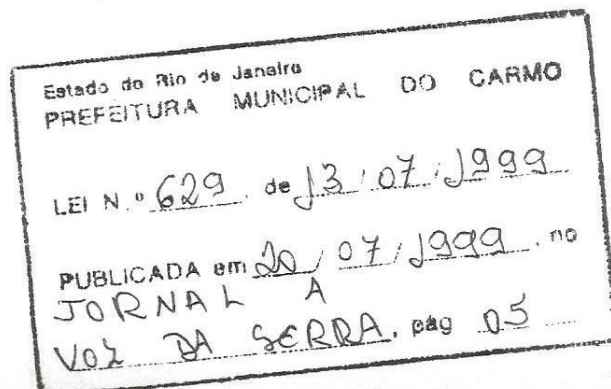 Estado do Rio de Janeiro
PREFEITURA MUNICIPAL DO CARMO
LEI N.º 629 de 13/07/1999
PUBLICADA em 20/07/1999. no
JORNAL A
VOZ DA SERRA. pág 05